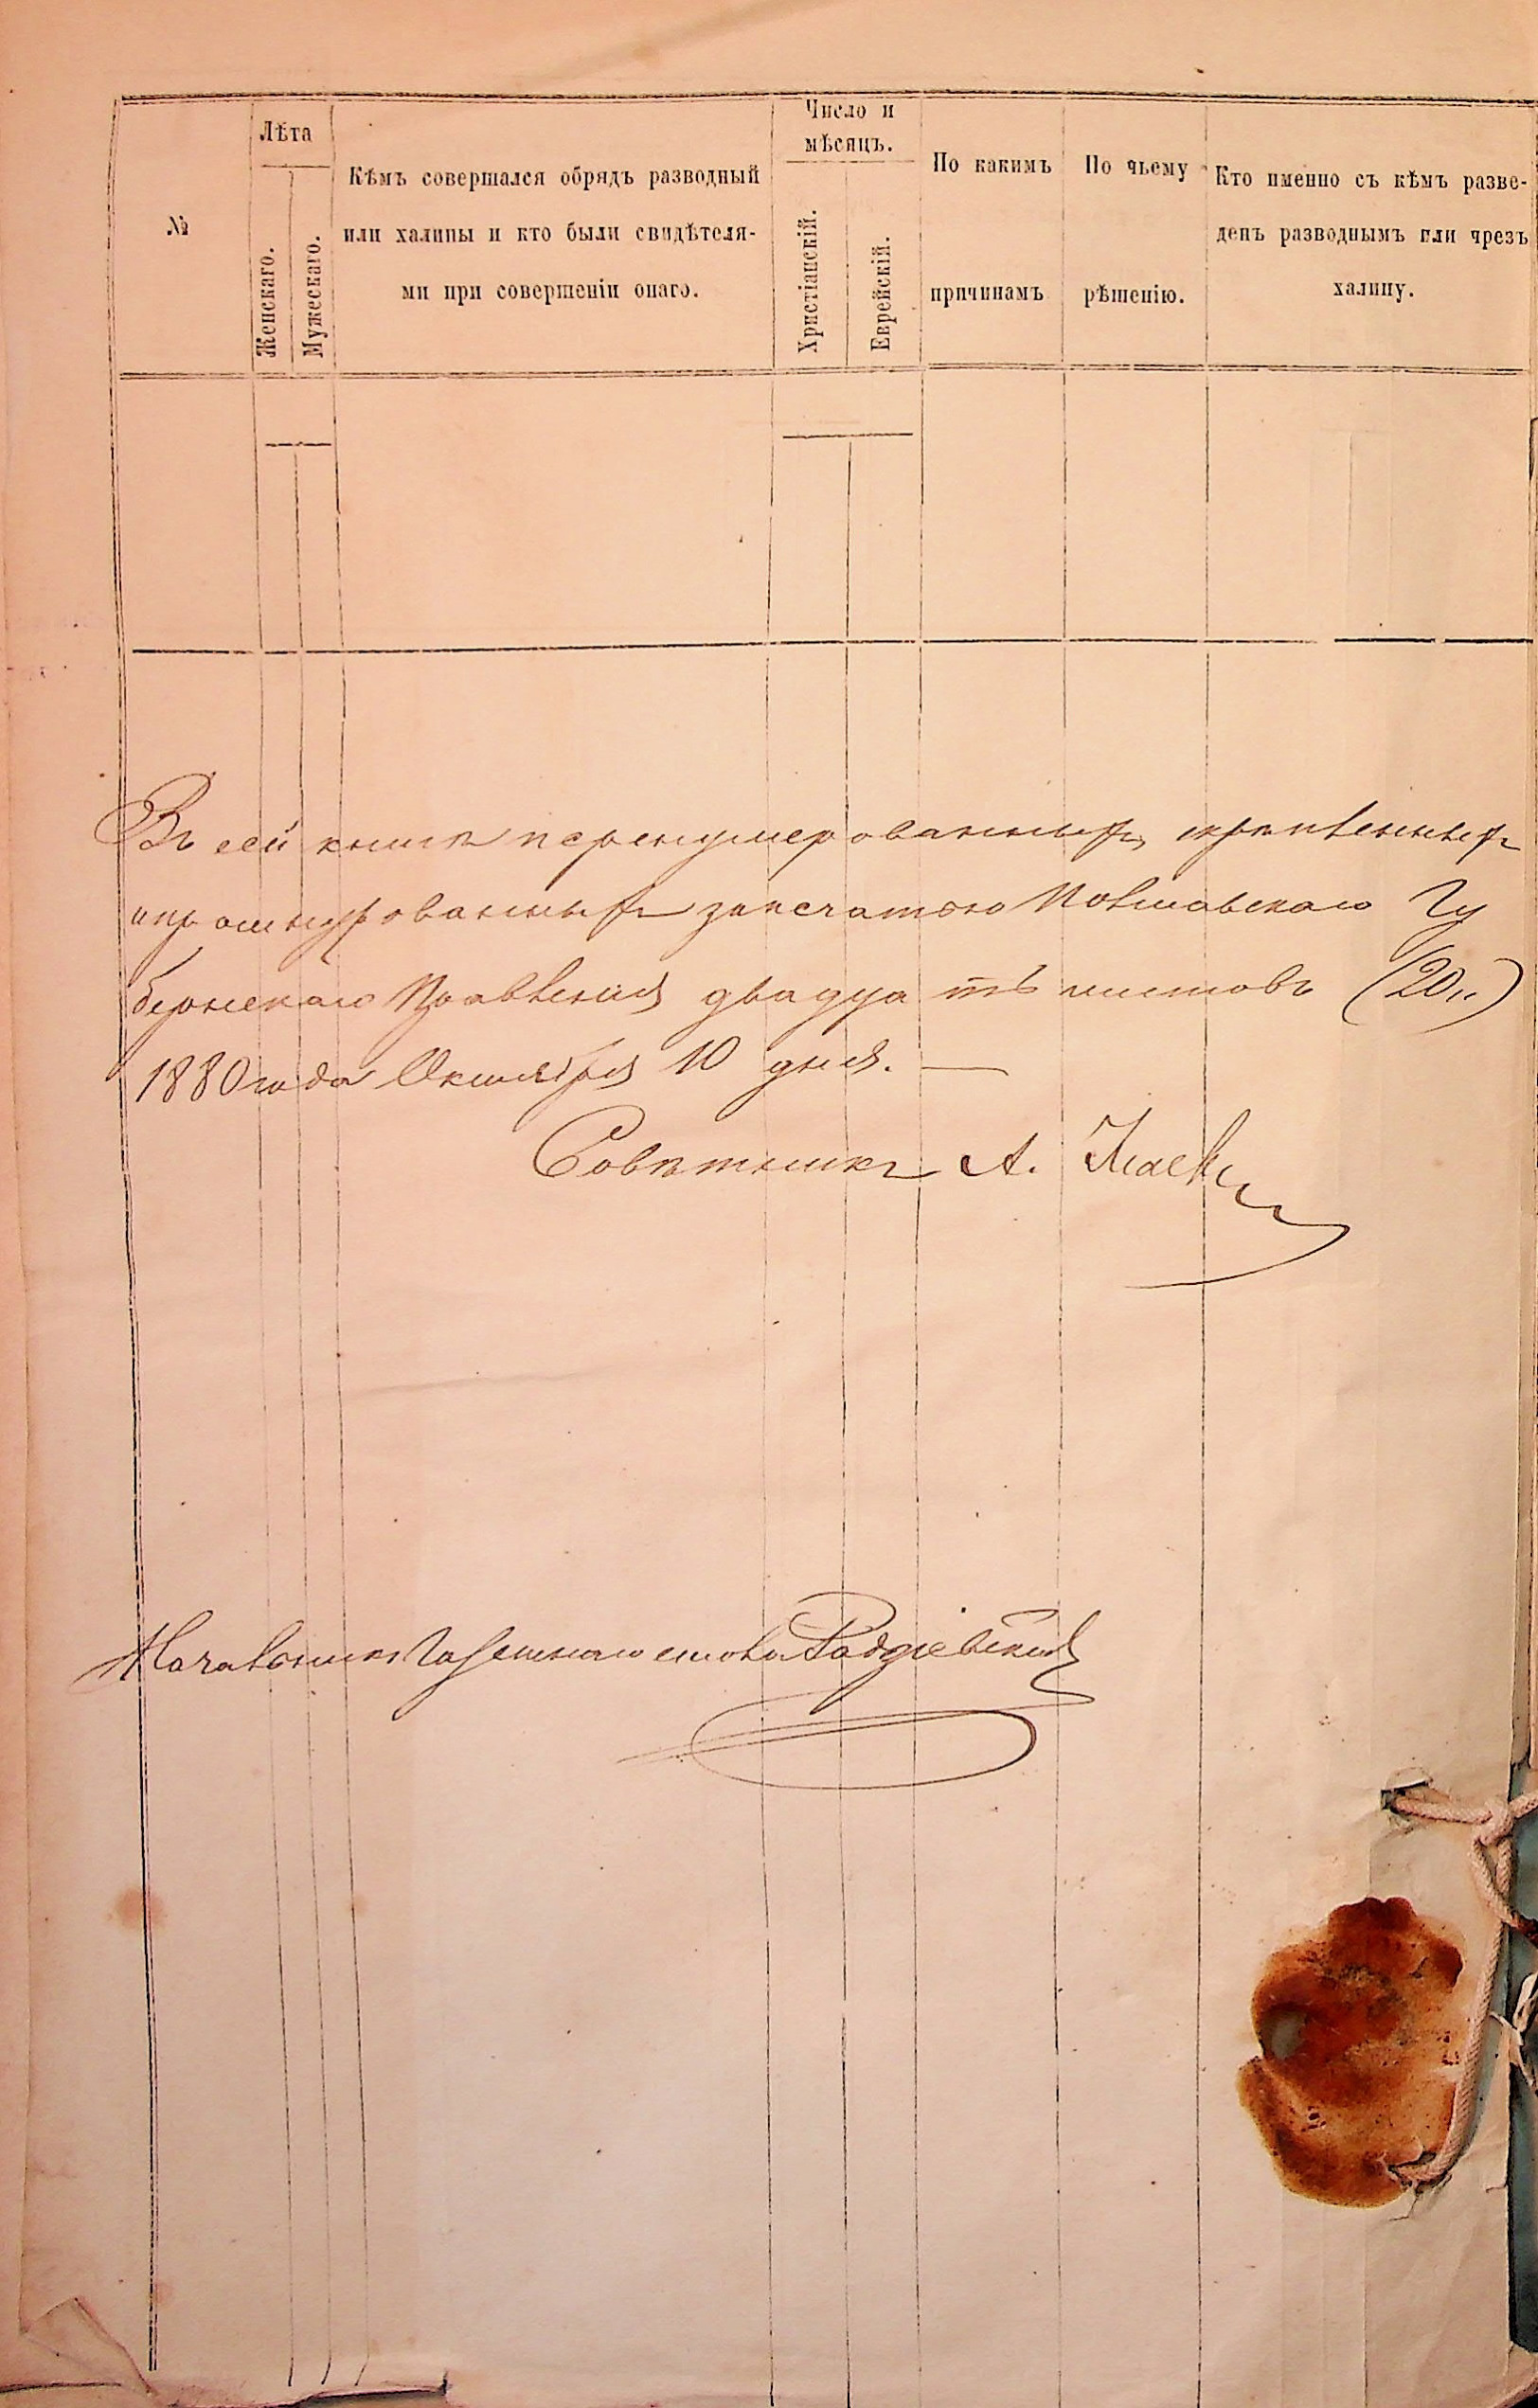 №
Лѣта
Женскаго.
Мужескаго.
Кѣмъ совершался обрядъ разводный
или халицы и кто были свидѣтеля-
ми при совершеніи онаго.
Число и
мѣсяцъ.
Христіанскій.
Еврейскій.
По какимъ
причинамъ
По чьему
рѣшенію.
Кто именно съ кѣмъ разве-
денъ разводнымъ или чрезъ
халицу.
Въ сей книгѣ перенумерованныхъ, скрѣпленныхъ
и прошнурованныхъ за печатью Полтавскаго Гу
бернскаго Правленія двадцать листовъ (20 л.)
1880 года Октября 10 дня. —
Совѣтникъ А.
Начальникъ Газетнаго стола Радзіевскій